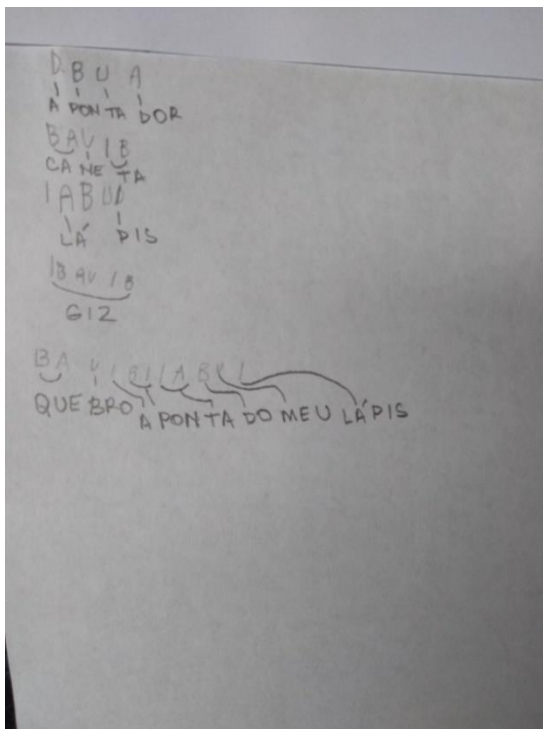 D B U A
A PON TA DOR
B A U I B
CA NE TA
I A B U D
LÁ PIS
I B A U I B
GIZ
B A U I B I I A B U I
QUE BRO A PON TA DO MEU LÁPIS